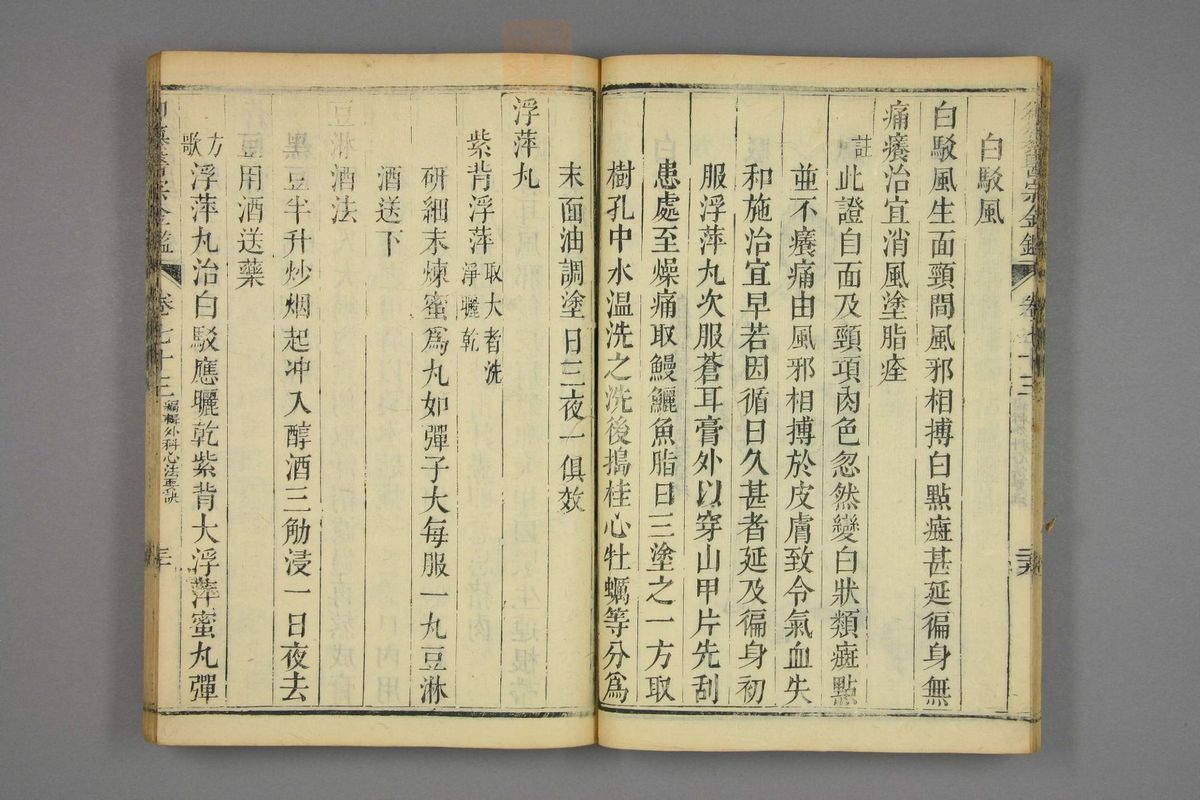 白駁風
白駁風生面頸間風邪相搏白點癍甚延徧身無
痛癢治宜消風塗脂痊
註此證自面及頸項肉色忽然變白狀類癍點
並不癢痛由風邪相搏於皮膚致令氣血失
和施治宜早若因循日久甚者延及徧身初
服浮萍丸次服蒼耳膏外以穿山甲片先刮
患處至燥痛取鰻鱺魚脂日三塗之一方取
樹孔中水温洗之洗後搗桂心牡蠣等分爲
末面油調塗日三夜一俱效
浮萍丸
紫背浮萍取大者洗淨曬乾
研細末煉蜜爲丸如彈子大每服一丸豆淋
酒送下
豆淋酒法
黑豆半升炒烟起冲入醇酒三觔浸一日夜去
豆用酒送藥
方歌浮萍丸治白駁應曬乾紫背大浮萍蜜丸彈
卷七十三編輯外科心法要訣